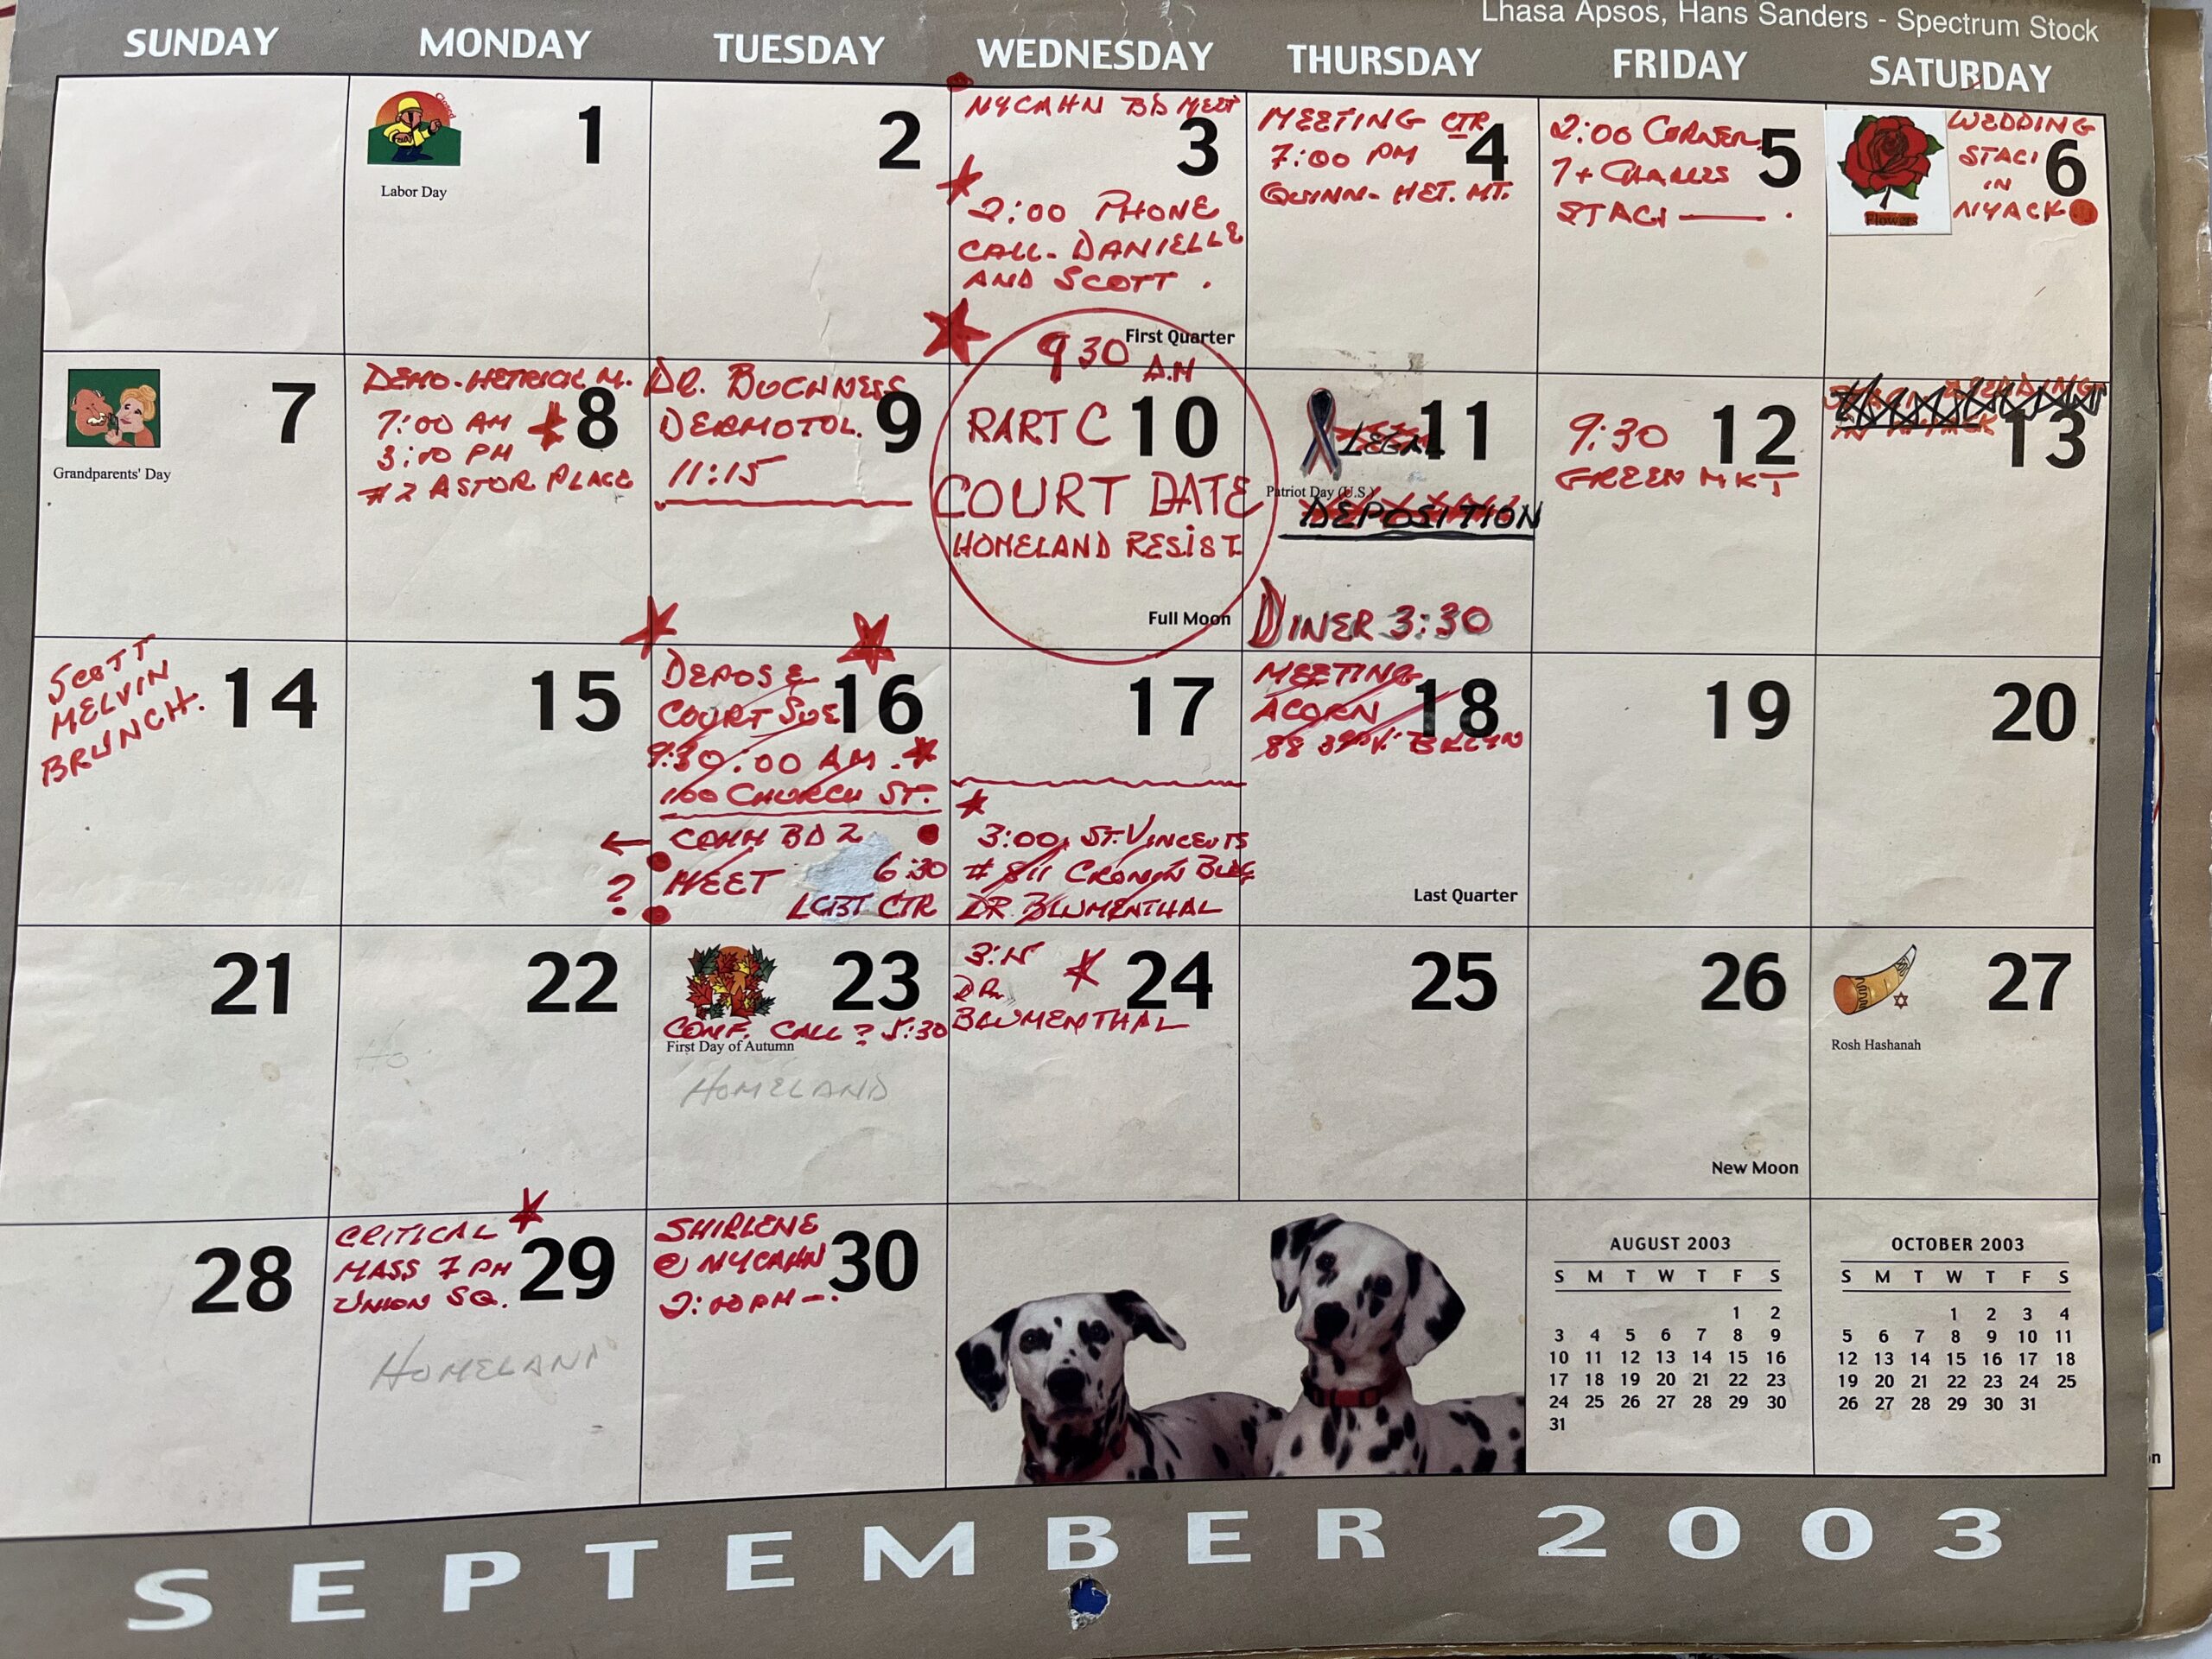 Lhasa Apsos, Hans Sanders - Spectrum Stock
SUNDAY MONDAY TUESDAY WEDNESDAY THURSDAY FRIDAY SATURDAY
Closed
1
Labor Day
2
NYCAHN BD MEET
3
2:00 PHONE
CALL - DANIELLE
AND SCOTT .
First Quarter
MEETING CTR
7:00 PM
4
QUINN - HET. MT.
2:00 CORNER
7 + CHARLES
5
STACI
WEDDING
STACI
6
IN
NYACK
Flowers
7
Grandparents' Day
DEMO - HETRICK M.
7:00 AM
8
3:00 PM
#2 ASTOR PLACE
DR. BUCHNESS
DERMOTOL.
9
11:15
9 30
A.M
PART C
10
COURT DATE
HOMELAND RESIST
Full Moon
LEGAL
11
Patriot Day (U.S.)
DEPOSITION
DINER 3:30
9:30
12
GREEN MKT
WEDDING
IN NYACK
13
SCOTT
MELVIN
BRUNCH.
14
15
DEPOSE
COURT SUE
16
9:30.00 AM.
100 CHURCH ST.
← COMM BD 2
6:30
? MEET
LGBT CTR
17
3:00, ST. VINCENTS
# 811 CRONIN BLDG
DR. BLUMENTHAL
MEETING
ACORN
18
88 BKLYN
Last Quarter
19
20
21
22
HO
23
CONF. CALL? 5:30
First Day of Autumn
HOMELAND
3:15
24
DR.
BLUMENTHAL
25
26
New Moon
27
Rosh Hashanah
28
CRITICAL
MASS 7 PM
29
UNION SQ.
HOMELAND
SHIRLENE
@ NYCAHN
30
2:00 PM - .
AUGUST 2003
S M T W T F S
1 2
3 4 5 6 7 8 9
10 11 12 13 14 15 16
17 18 19 20 21 22 23
24 25 26 27 28 29 30
31
OCTOBER 2003
S M T W T F S
1 2 3 4
5 6 7 8 9 10 11
12 13 14 15 16 17 18
19 20 21 22 23 24 25
26 27 28 29 30 31
SEPTEMBER 2003